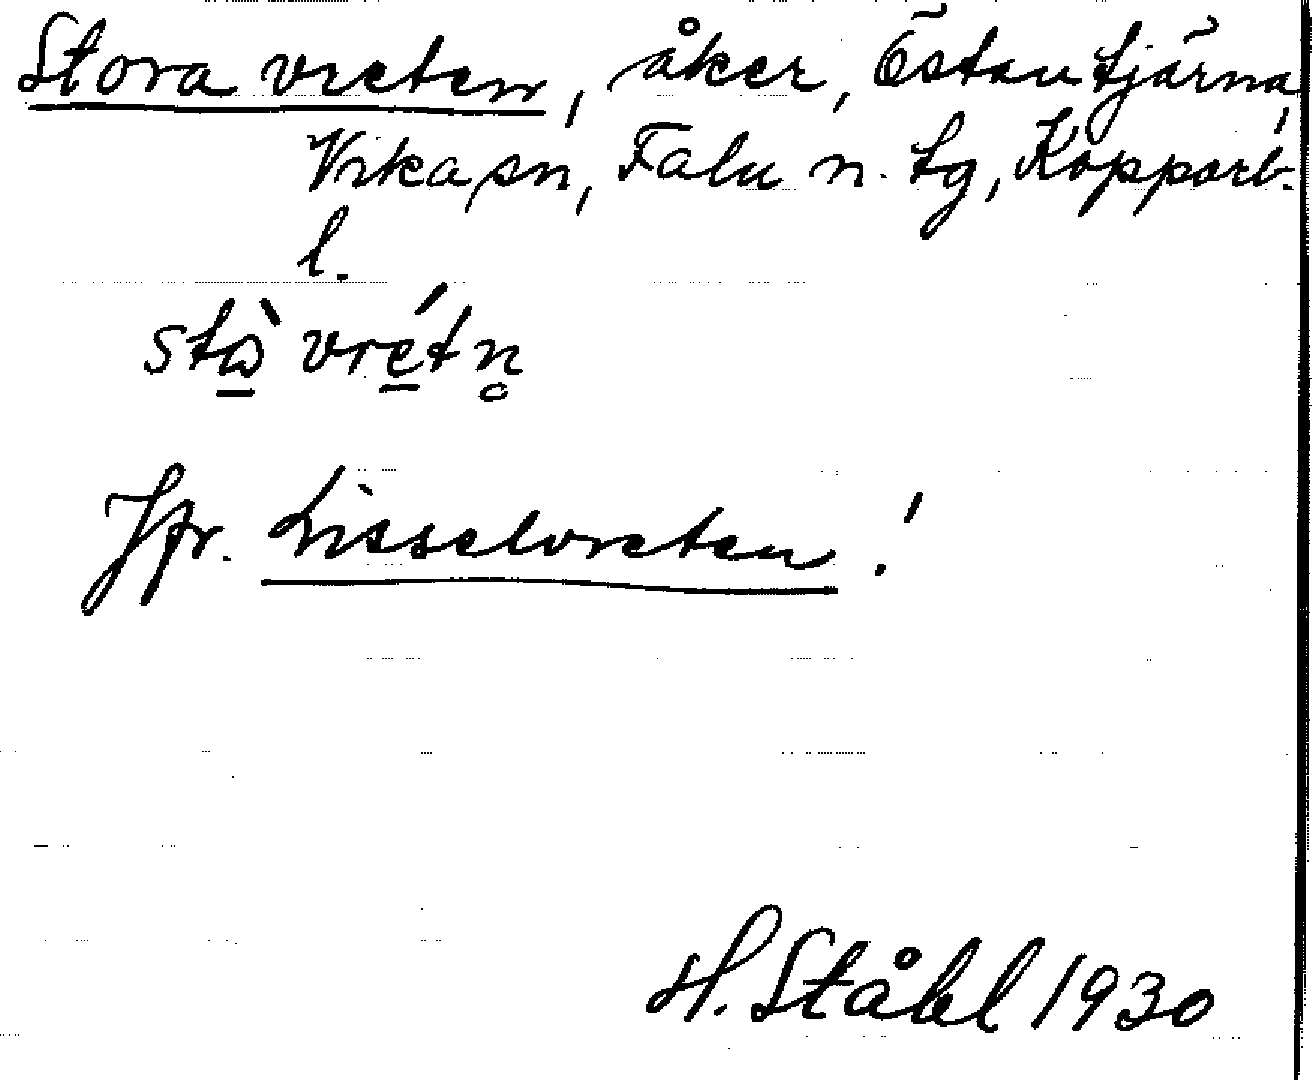 Stora vreten, åker, Östantjärna,
Vika sn, Falu n. tg, Kopparb.
l.
vrétn̥
Jfr. Lisselvreten!
H. Ståhl 1930